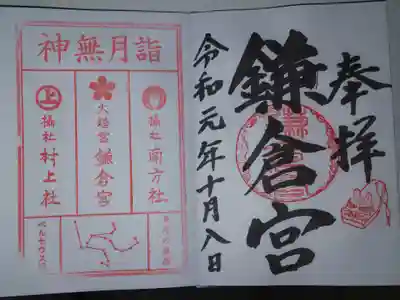 奉拝
鎌倉宮
令和元年十月八日
神無月詣
摂社 南方社
大塔宮 鎌倉宮
摂社 村上社
ペルセウス